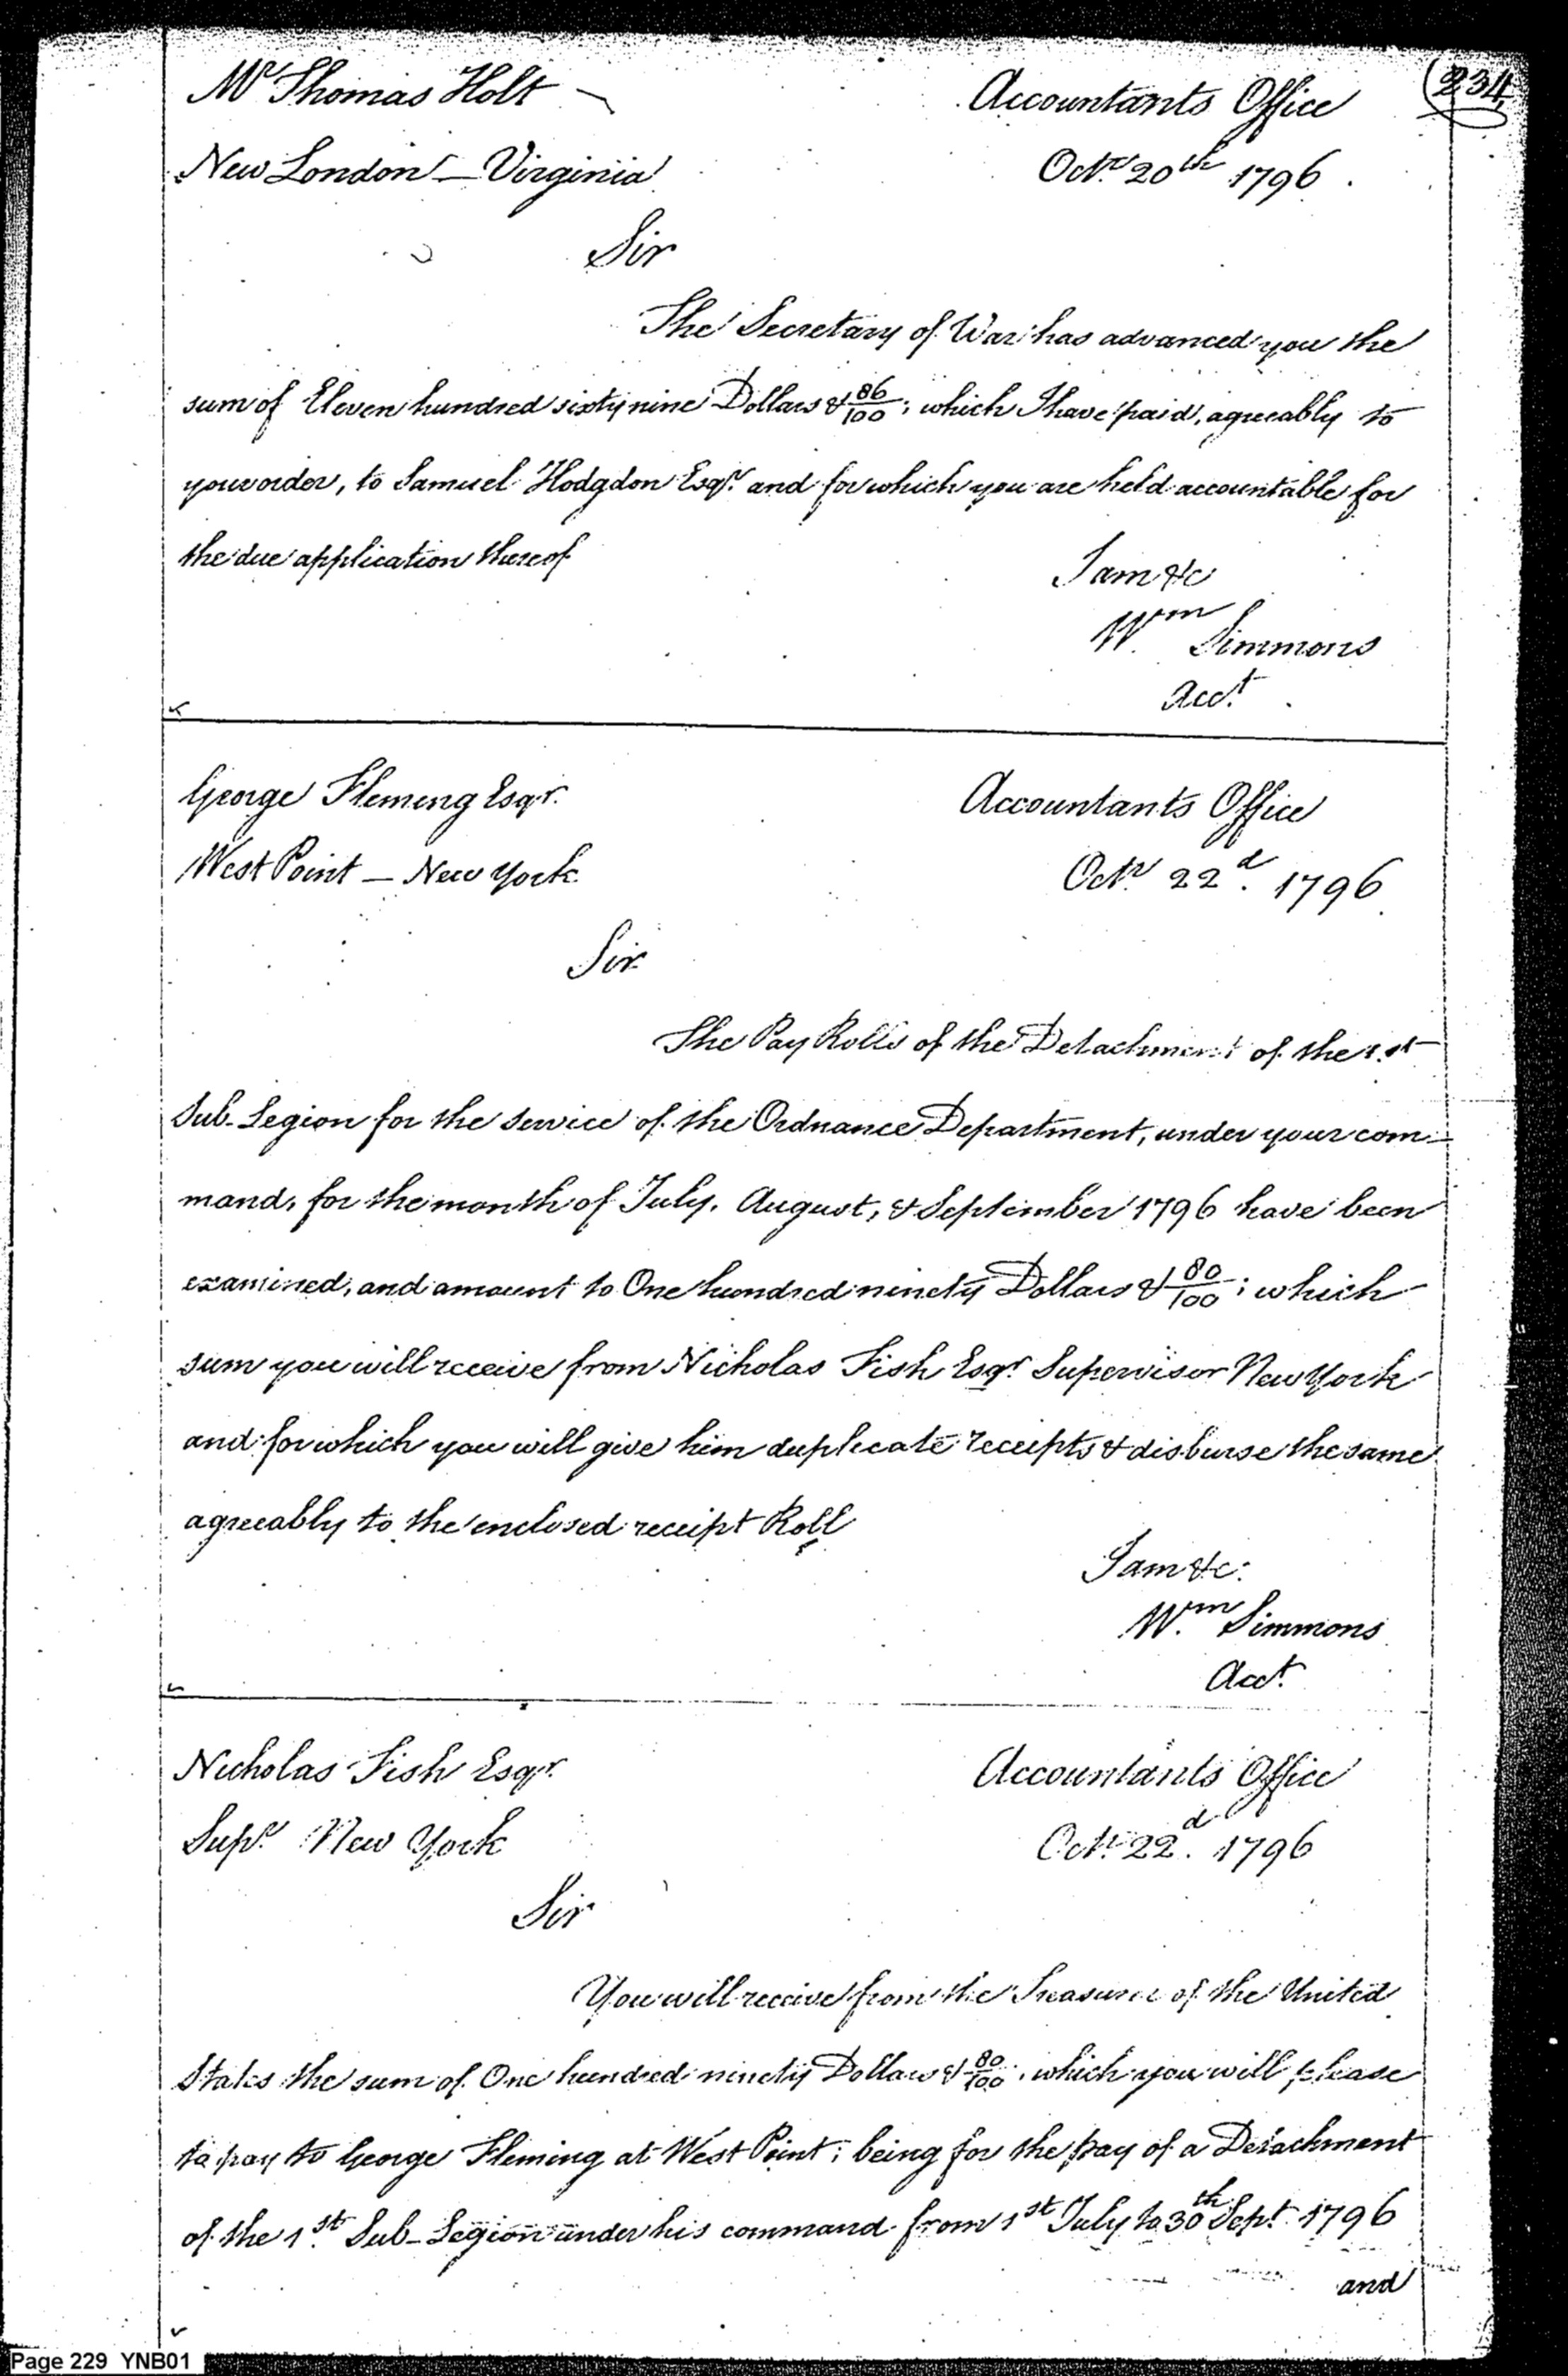 (234
Mr Thomas Holt
Accountants Office
New London – Virginia
Octr. 20th 1796.
Sir
The Secretary of War has advanced you the
sum of Eleven hundred sixty nine Dollars & 86/100; which I have paid, agreeably to
your order, to Samuel Hodgdon Esqr. and for which you are held accountable for
the due application thereof
I am &c
Wm Simmons
Acct.
George Fleming Esqr.
Accountants Office
West Point – New York
Octr. 22d. 1796
Sir
The Pay Rolls of the Detachment of the 1st
Sub-Legion for the service of the Ordnance Department, under your com-
mand, for the month of July, August, & September 1796 have been
examined, and amount to One hundred ninety Dollars & 80/100; which
sum you will receive from Nicholas Fish Esqr Supervisor New York
and for which you will give him duplicate receipts & disburse the same
agreeably to the enclosed receipt Roll
I am &c:
Wm. Simmons
Acct.
Nicholas Fish Esqr.
Accountants Office
Supr. New York
Octr. 22d. 1796
Sir
You will receive from the Treasurer of the United
States the sum of One hundred ninety Dollars & 80/100. which you will please
to pay to George Fleming at West Point; being for the pay of a Detachment
of the 1st. Sub-Legion under his command from 1st July to 30th Sept. 1796
and
Page 229 YNB01